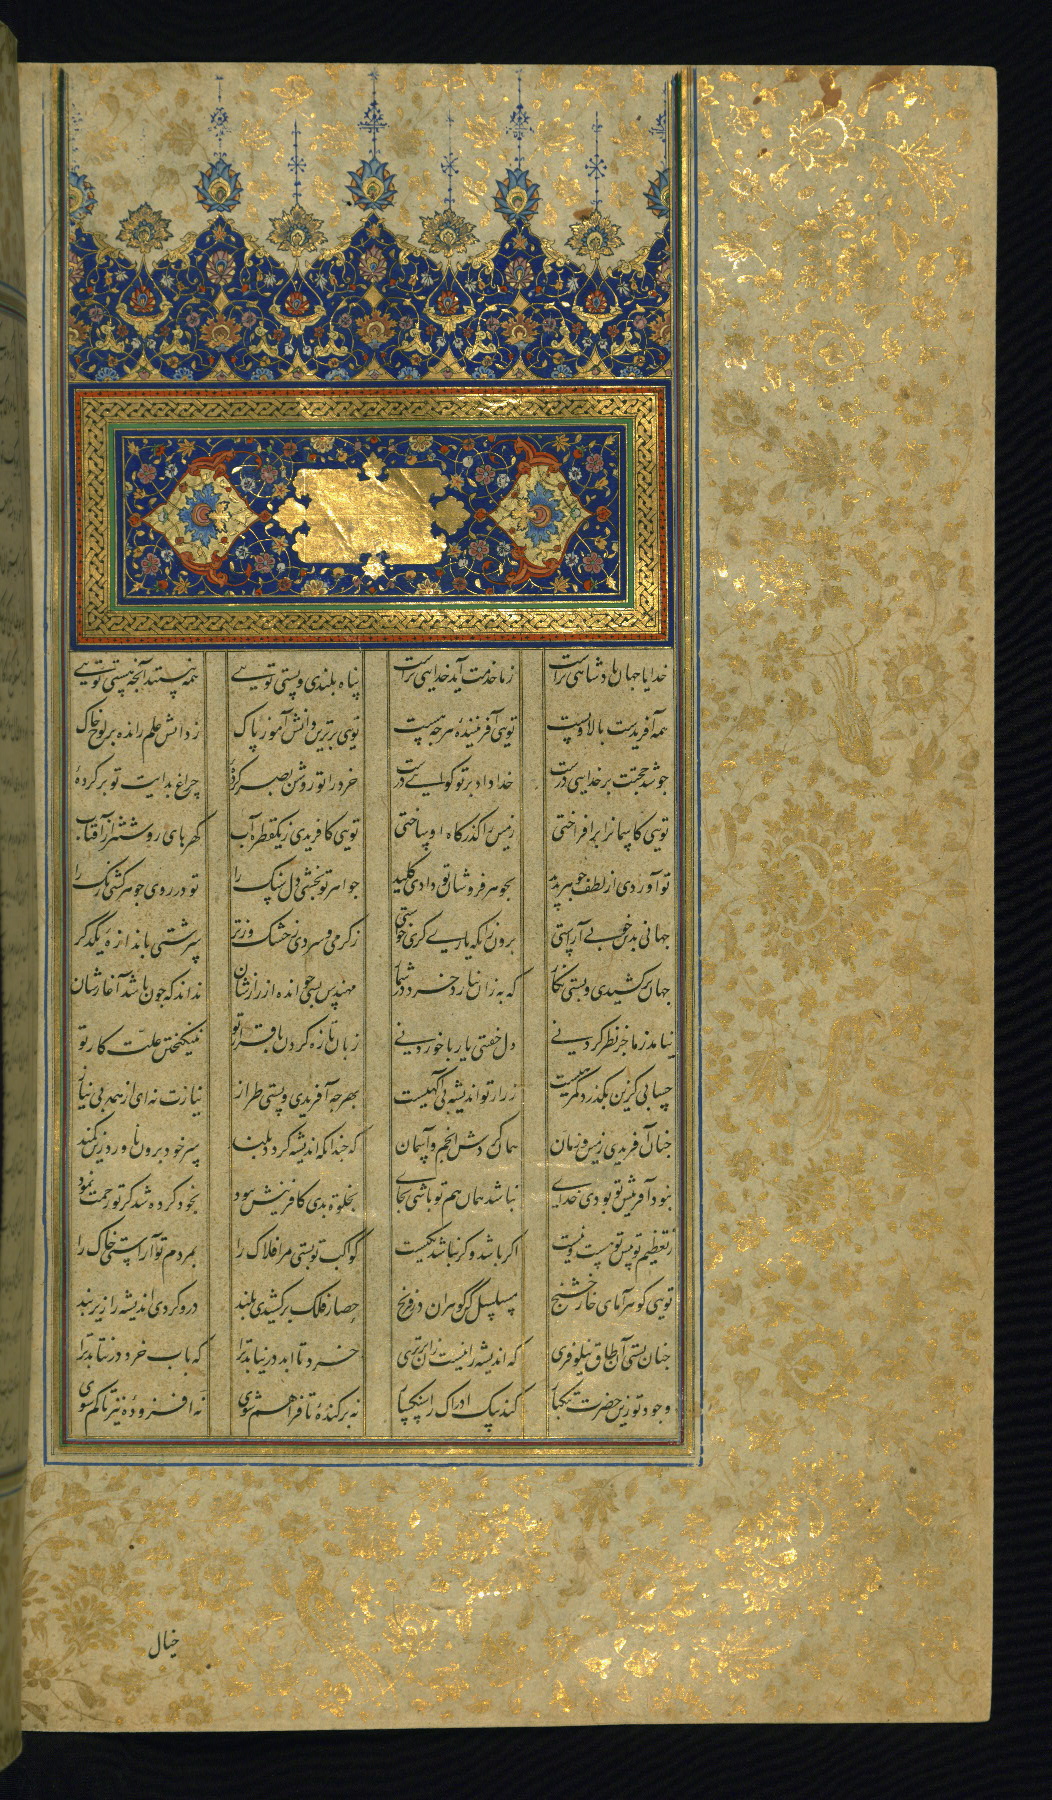 خدایا جهان پادشاهی تراست    ز ما خدمت آید خدایی تراست    پناه بلندی و پستی تویی    همه نیستند آنچه هستی تویی
همه آفریدست بالا و پست    تویی آفرینندهٔ هرچه هست    تویی برترین دانش‌آموز پاک    ز دانش قلم رانده بر لوح خاک
چو شد حجتت بر خدایی درست    خرد داد بر تو گواهی نخست    خرد را تو روشن بصر کردهٔ    چراغ هدایت تو بر کردهٔ
تویی کاسمانرا برافراختی    زمین را گذرگاه او ساختی    تویی کافریدی ز یک قطره آب    گهرهای روشن‌تر از آفتاب
تو آوردی از لطف جوهر پدید    بجوهر فروشان تو دادی کلید    جواهر تو بخشی دل سنگ را    تو در روی جوهر کشی رنگ را
جهانی بدین خوبی آراستی    برون زانکه یاریگری خواستی    ز گرمی و سردی و از خشک و تر    سرشتی باندازهٔ یکدگر
چنان برکشیدی و بستی نگار    که به زان نیارد خرد در شمار    مهندس بسی جوید از رازشان    نداند که چون باشد آغازشان
نیاید ز ما جز نظر کردنی    دگر خفتنی باز یا خوردنی    زبان تازه کردن باقرار تو    نینگیختن علت کار تو
حسابی کزین بگذرد گمرهیست    ز راز تو اندیشه بی‌آگهیست    بهرچه آفریدی و بستی طراز    نیازت نه ای از همه بی‌نیاز
چنان آفریدی زمین و زمان    همان گردش انجم و آسمان    که چندانکه اندیشه گردد بلند    سر خود برون ناورد زین کمند
نبود آفرینش تو بودی خدای    نباشد همان هم تو باشی بجای    
ز تعظیم تو پیش تو هست و نیست    اگر باشد و گر نباشد یکیست    کواکب تو بستی مر افلاک را    بمردم تو آراستی خاک را
تویی گوهر آمای چار آخشیج    مسلسل کن گوهران در مزیج    حصار فلک برکشیدی بلند    درو کردی اندیشه را زیر بند
چنان بستی آن طاق نیلوفری    که اندیشه را نیست زان برتری    خرد تا ابد در نیابد ترا    که تاب خرد در نتابد ترا
وجود تو زین حضرت تنگبار    کند پیک ادراک را سنگسار    نه برکندهٔ تا فراهم شوی    نه افزودهٔ نیز تا کم شوی
خیال